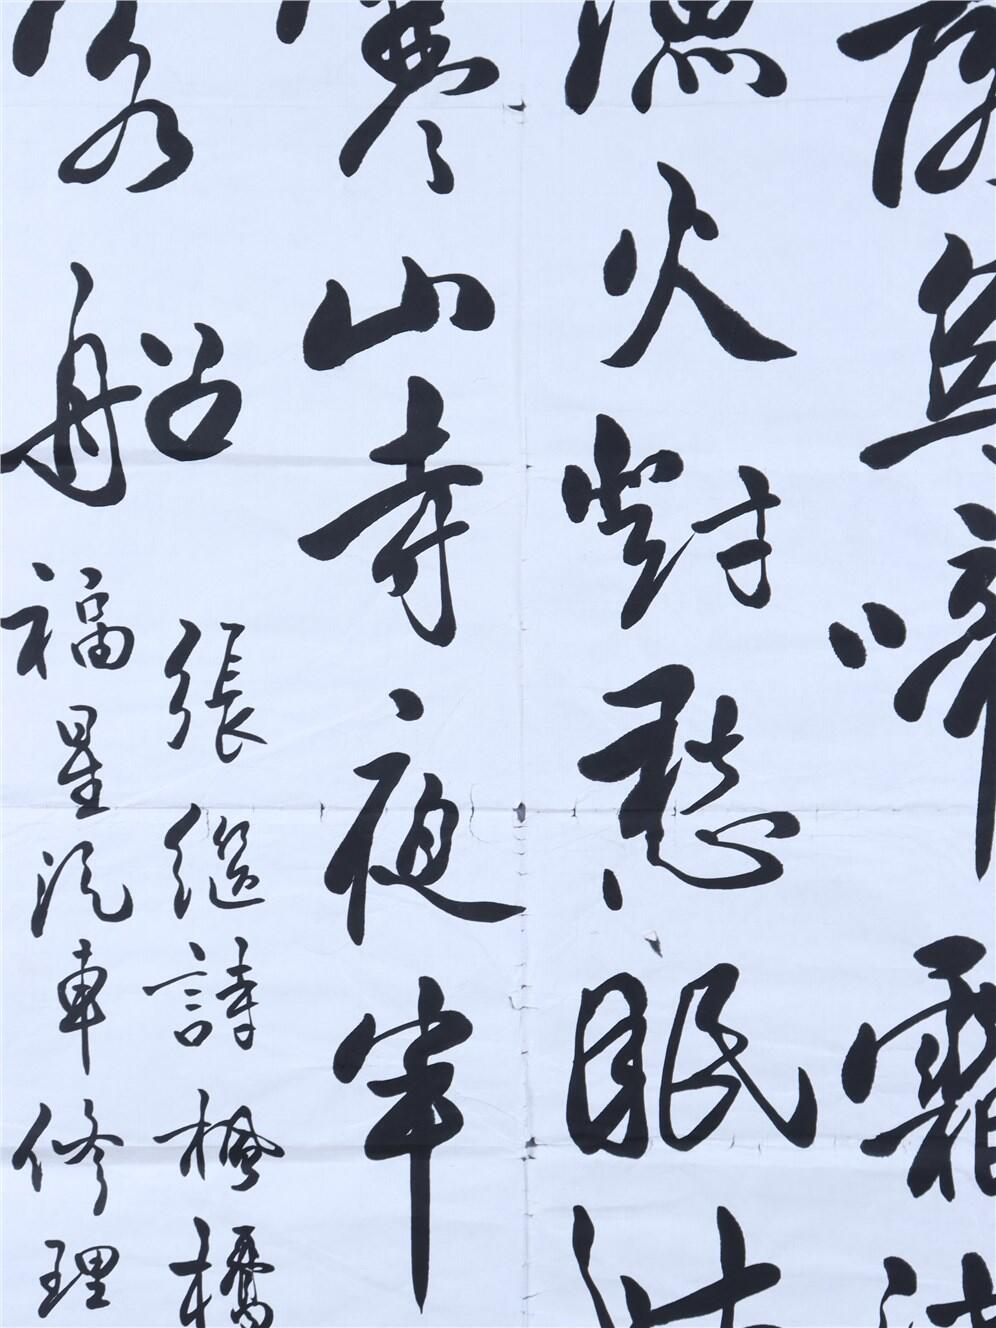 烏啼霜滿
漁火對愁眠姑
寒山寺夜半
客船
張繼詩楓橋
福星汽車修理